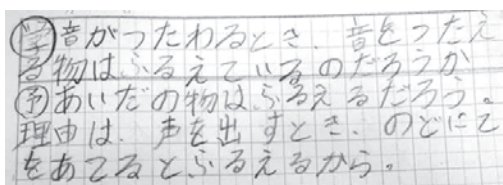 学 音がつたわるとき、音をつたえ
る物はふるえているのだろうか
予 あいだの物はふるえるだろう。
理由は、声を出すとき、のどにて
をあてるとふるえるから。